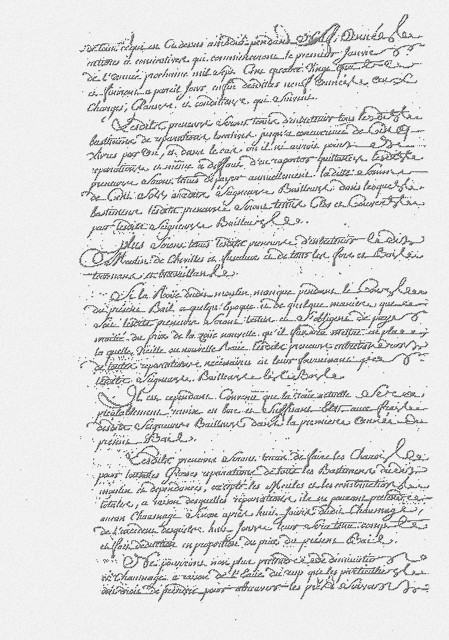 de tout ce qui est Cy dessus pendant neuf Années
entières et consécutives qui commenceront le premier Janvier
de l'Année prochaine mil sept Cent quatre vingt
et finiront a pareil jour lesdites neuf Années aux
Charges, Clauses et conditions qui suivent
Lesdits preneurs seront tenus d'entretenir tous lesdits
bastiments de reparations locatives jusqu'a concurrence de
Livres par An, et dans le cas ou il n'y auroit point de
reparations et même a deffaut d'en raporter quittances lesdits
preneurs seront tenus de payer annuellement ladite somme
de auxdits Seigneurs Bailleurs dans lesquels
bastiments lesdits preneurs seront tenus Clos et Couverts
par lesdits Seigneurs Bailleurs
plus seront tenus lesdits preneurs d'entretenir ledit
Moulin de Chevilles et fuseaux et de tous les fers et Bois
tournans et travaillans
Si la Roüe dudit moulin manque pendant le Cours
du présent Bail, a quelqu'époque et de quelque manière que ce
soit lesdits preneurs seront tenus et s'obligent de payer
moitié du prix de la roüe nouvelle qu'il faudra mettre en place
laquelle Vieille ou nouvelle Roüe lesdits preneurs entretiendront
de toutes reparations nécessaires en leur fournissant par
lesdits Seigneurs Bailleurs les Bois
Il est cependant Convenu que la roüe actuelle sera
préalablement remise en bon et suffisant Etat aux frais
desdits Seigneurs Bailleurs dans la premiere année du
présent Bail
Lesdits preneurs seront tenus de faire les Chaux
pour toutes les Grosses reparations de tous les Bastiments dudit
moulin et dependances, excepté les Meules et les constructions
totales, a raison desquelles réparations ils ne pourront prétendre
aucun Chaumage sinon après huit Jours dudit Chaumage,
de l'excédent desquels huit Jours leur sera tenu compte
et fait déduction en proportion du prix du présent Bail
Ne pourront non plus prétendre de diminution
ni Chaumages a raison de l'Eaüe du rup que les particuliers
ont droit de prendre pour abreuver les prés suivant